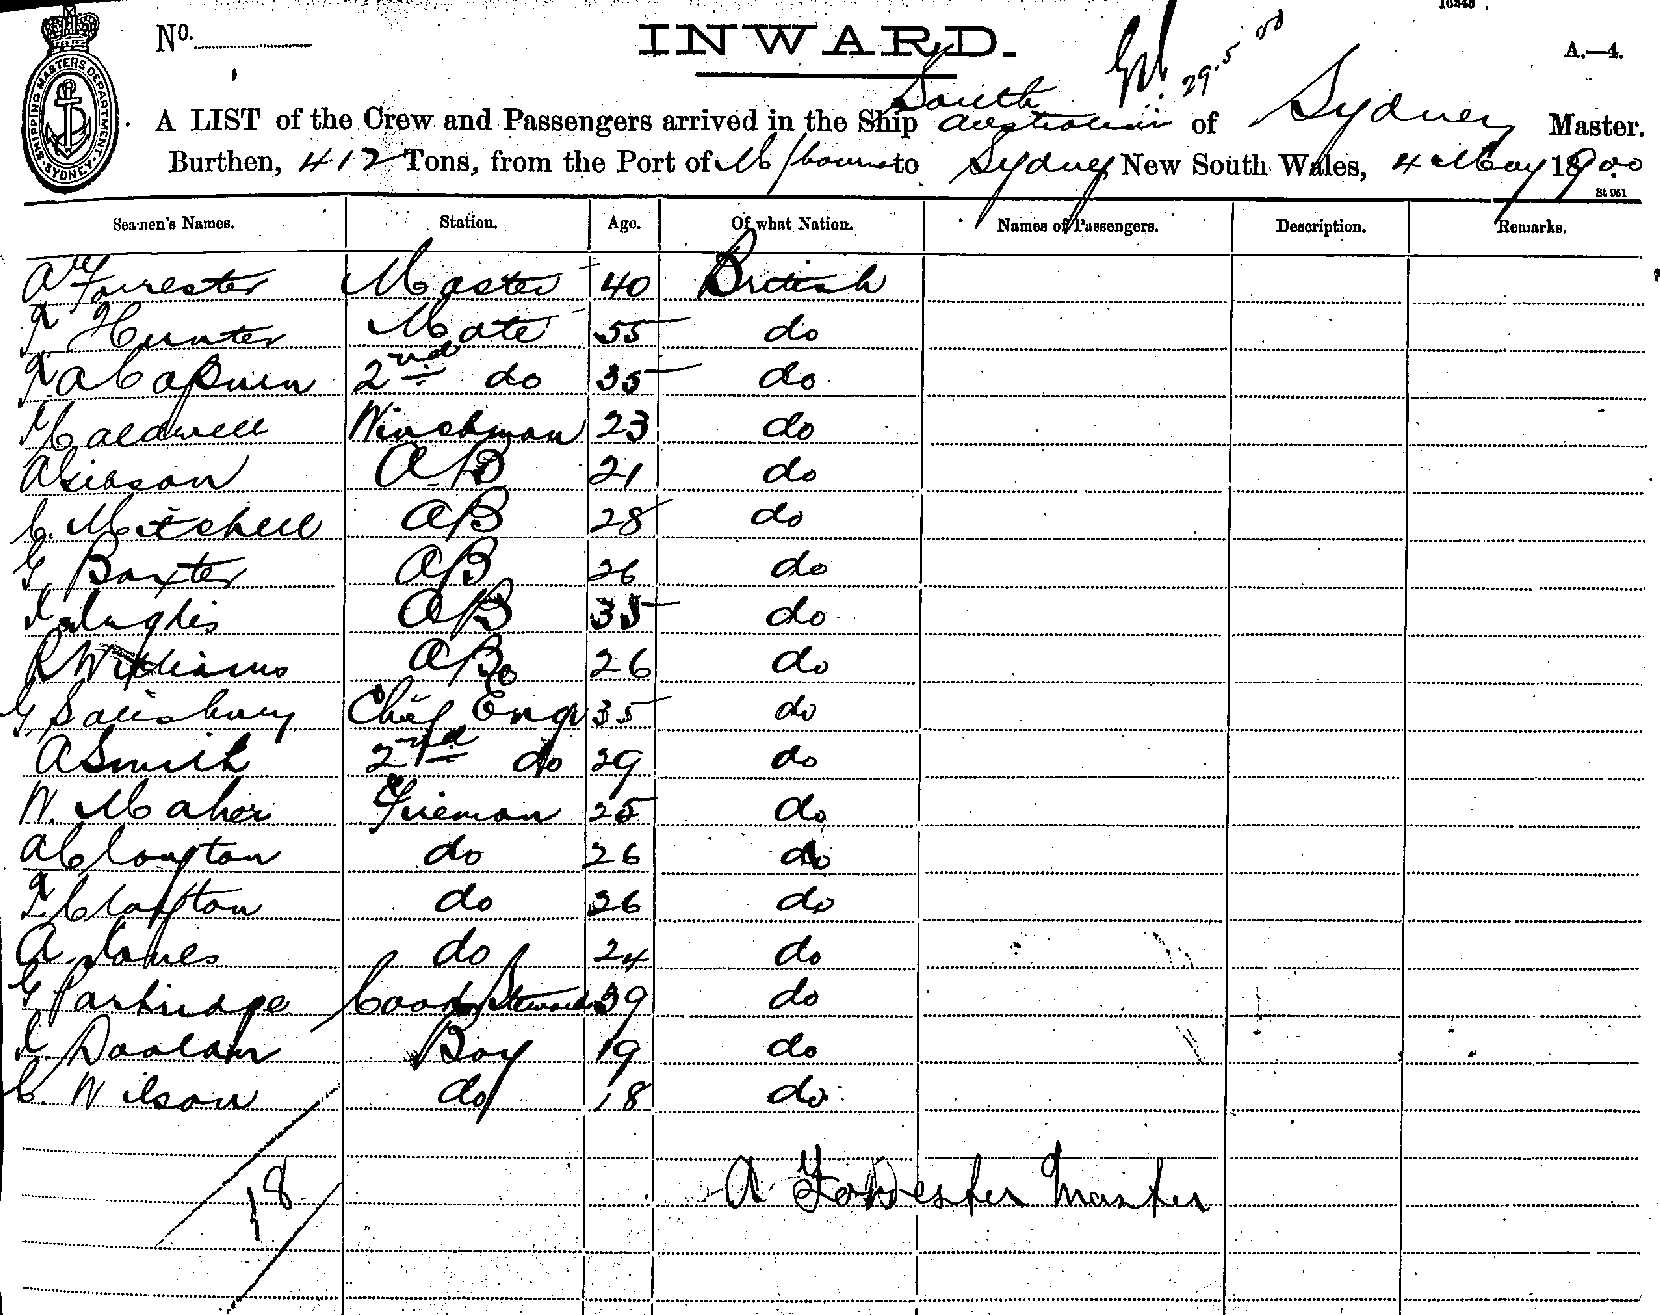 No.
INWARD.
29.5.00
A.—4.
SHIPPING MASTERS DEPARTMENT SYDNEY
South
A LIST of the Crew and Passengers arrived in the Ship Australian of Sydney Master.
Burthen, 412 Tons, from the Port of M/bourne to Sydney New South Wales, 4 May 1900
St 961
Seamen's Names. Station. Age. Of what Nation. Names of Passengers. Description. Remarks.
A Forrester Master 40 British
Hunter Mate 55 do
2nd do 35 do
Caldwell Winchman 23 do
A Gibson AB 21 do
C. Mitchell AB 28 do
G Baxter AB 26 do
AB 35 do
R Williams AB 26 do
G Salisbury Chief Engr 35 do
A Smith 2nd do 29 do
W. Maher Fireman 25 do
A Clayton do 26 do
Clayton do 26 do
A Jones do 24 do
G Partridge Cook & Steward 39 do
Doolan Boy 19 do
C. Wilson do 18 do
18
A Forrester Master